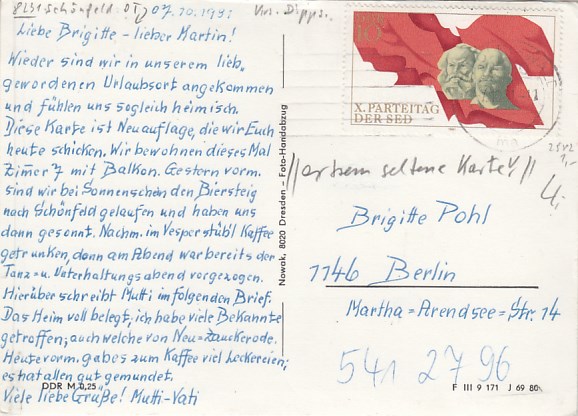 8231 Schönfeld OT, 07.10.1981
Krs. Dipps.
Liebe Brigitte - lieber Martin!
Wieder sind wir in unserem lieb-
gewordenen Urlaubsort angekommen
und fühlen uns sogleich heimisch.
Diese Karte ist Neuauflage, die wir Euch
heute schicken. Wir bewohnen dieses Mal
Zimmer 7 mit Balkon. Gestern vorm.
sind wir bei Sonnenschen den Biersteig
nach Schönfeld gelaufen und haben uns
dann gesonnt. Nachm. im Vesperstübl Kaffee
getrunken, dann am Abend war bereits der
Tanz= u. Unterhaltungsabend vorgezogen.
Hierüber schreibt Mutti im folgenden Brief.
Das Heim voll belegt, ich habe viele Bekannte
getroffen; auch welche von Neu=Zauckerode.
Heute vorm. gab es zum Kaffee viel Leckereien;
es hat allen gut gemundet.
Viele liebe Grüße! Mutti-Vati
DDR M 0,25
Nowak, 8020 Dresden – Foto-Handabzug
DDR
10
X. PARTEITAG
DER SED
2502
1,-
//extrem seltene Karte!//
4,-
Brigitte Pohl
1146 Berlin
Martha=Arendsee=Str. 14
541 27 96
F III 9 171 J 69 80